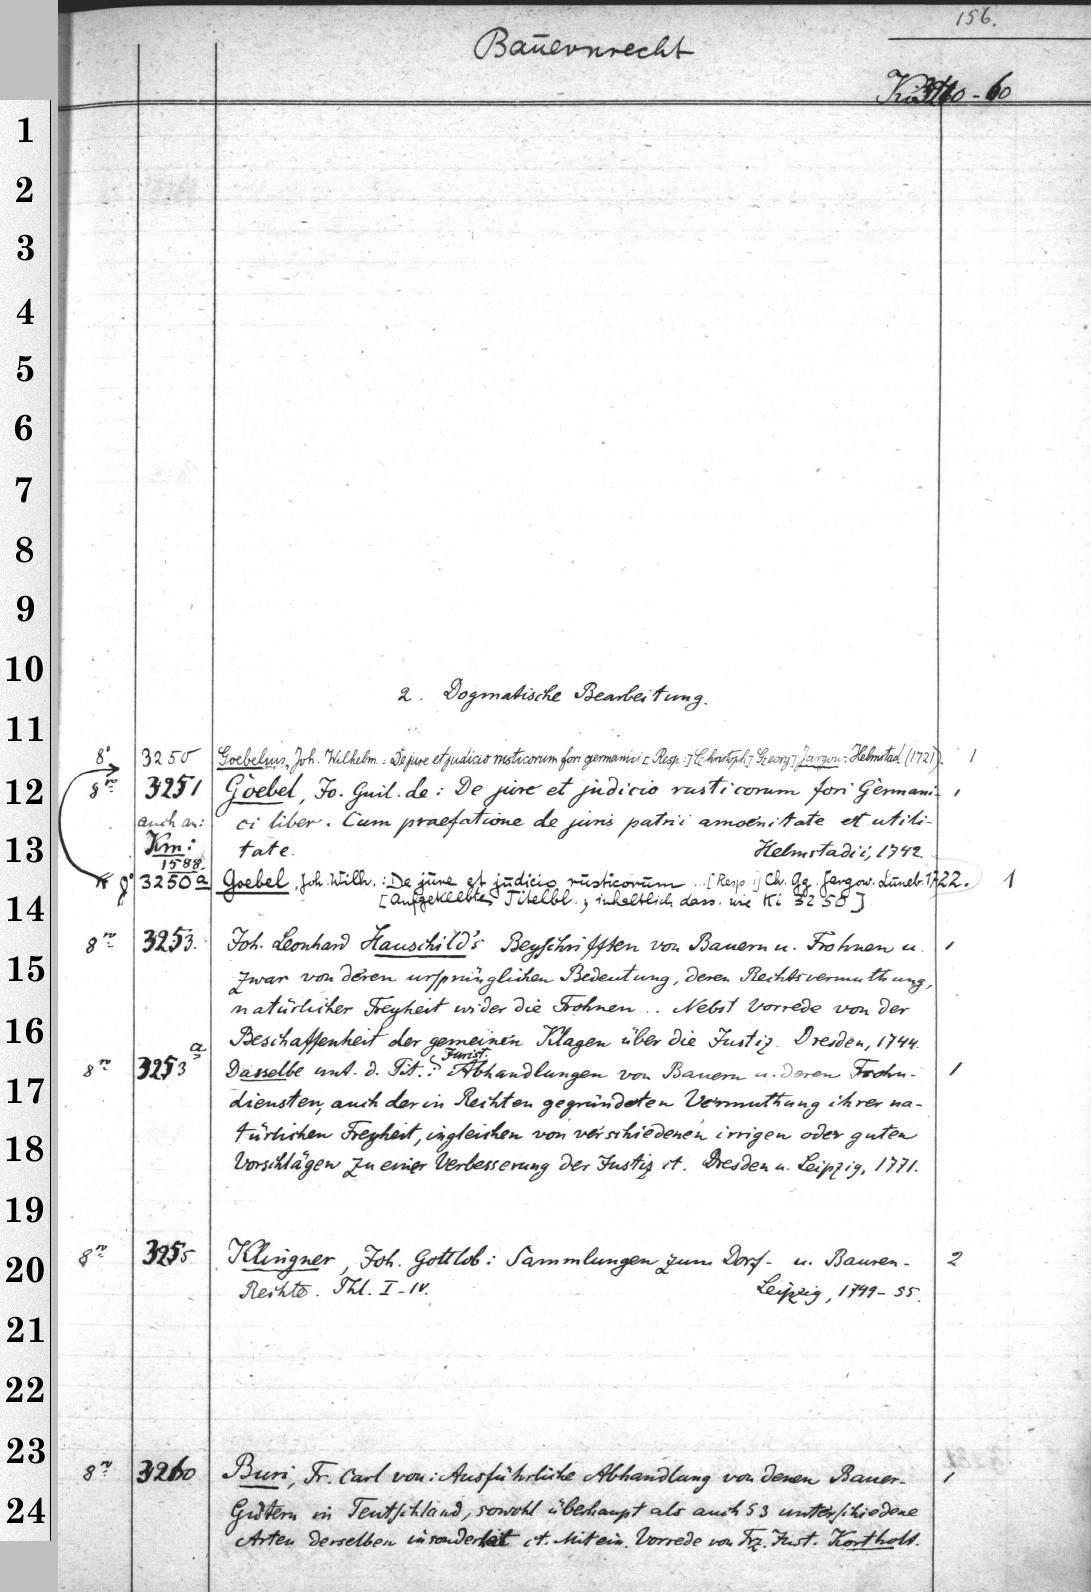 156.
Bauernrecht
Ki 3240-60
1
2
3
4
5
6
7
8
9
10
2. Dogmatische Bearbeitung.
11
8° 3250 Goebelius, Joh. Wilhelm.: De jure et judicio rusticorum fori germanici [Resp.:] Christoph Georg Jargow. Helmstad (1721). 1
12 8vo 3251 Goebel, Jo. Guil. de: De jure et judicio rusticorum fori Germani- 1
auch an: ci liber. Cum praefatione de juris patrii amoenitate et utili-
13 Km: tate. Helmstadii, 1742.
1588.
8° 3250a Goebel, Joh. Wilh.: De jure et judicio rusticorum ... [Resp.:] Ch. Gg. Jargow. Luneb. 1722. 1
14 [Aufgeklebtes Titelbl.; inhaltlich dass. wie Ki 3250]
8vo 3253. Joh. Leonhard Hauschild's Beyschrifften von Bauern u. Frohnen u. 1
15 zwar von deren ursprünglichen Bedeutung, deren Rechtsvermuthung,
natürlicher Freyheit wider die Frohnen... Nebst Vorrede von der
16 Beschaffenheit der gemeinen Klagen über die Justiz. Dresden, 1744.
8vo 3253a Dasselbe unt. d. Tit.: Jurist. Abhandlungen von Bauern u. deren Frohn- 1
17 diensten, auch der in Rechten gegründeten Vermuthung ihrer na-
18 türlichen Freyheit, ingleichen von verschiedenen irrigen oder guten
Vorschlägen zu einer Verbesserung der Justiz et. Dresden u. Leipzig, 1771.
19
8vo 3255 Klingner, Joh. Gottlob: Sammlungen zum Dorf- u. Bauren- 2
20 Rechte. Thl. I-IV. Leipzig, 1749-55.
21
22
23
8vo 3260 Buri, Fr. Carl von: Ausführliche Abhandlung von denen Bauer- 1
24 Gütern in Teutschland, sowohl überhaupt als auch 53 unterschiedene
Arten derselben insonderheit et. Mit ein. Vorrede von Frz. Just. Kortholt.